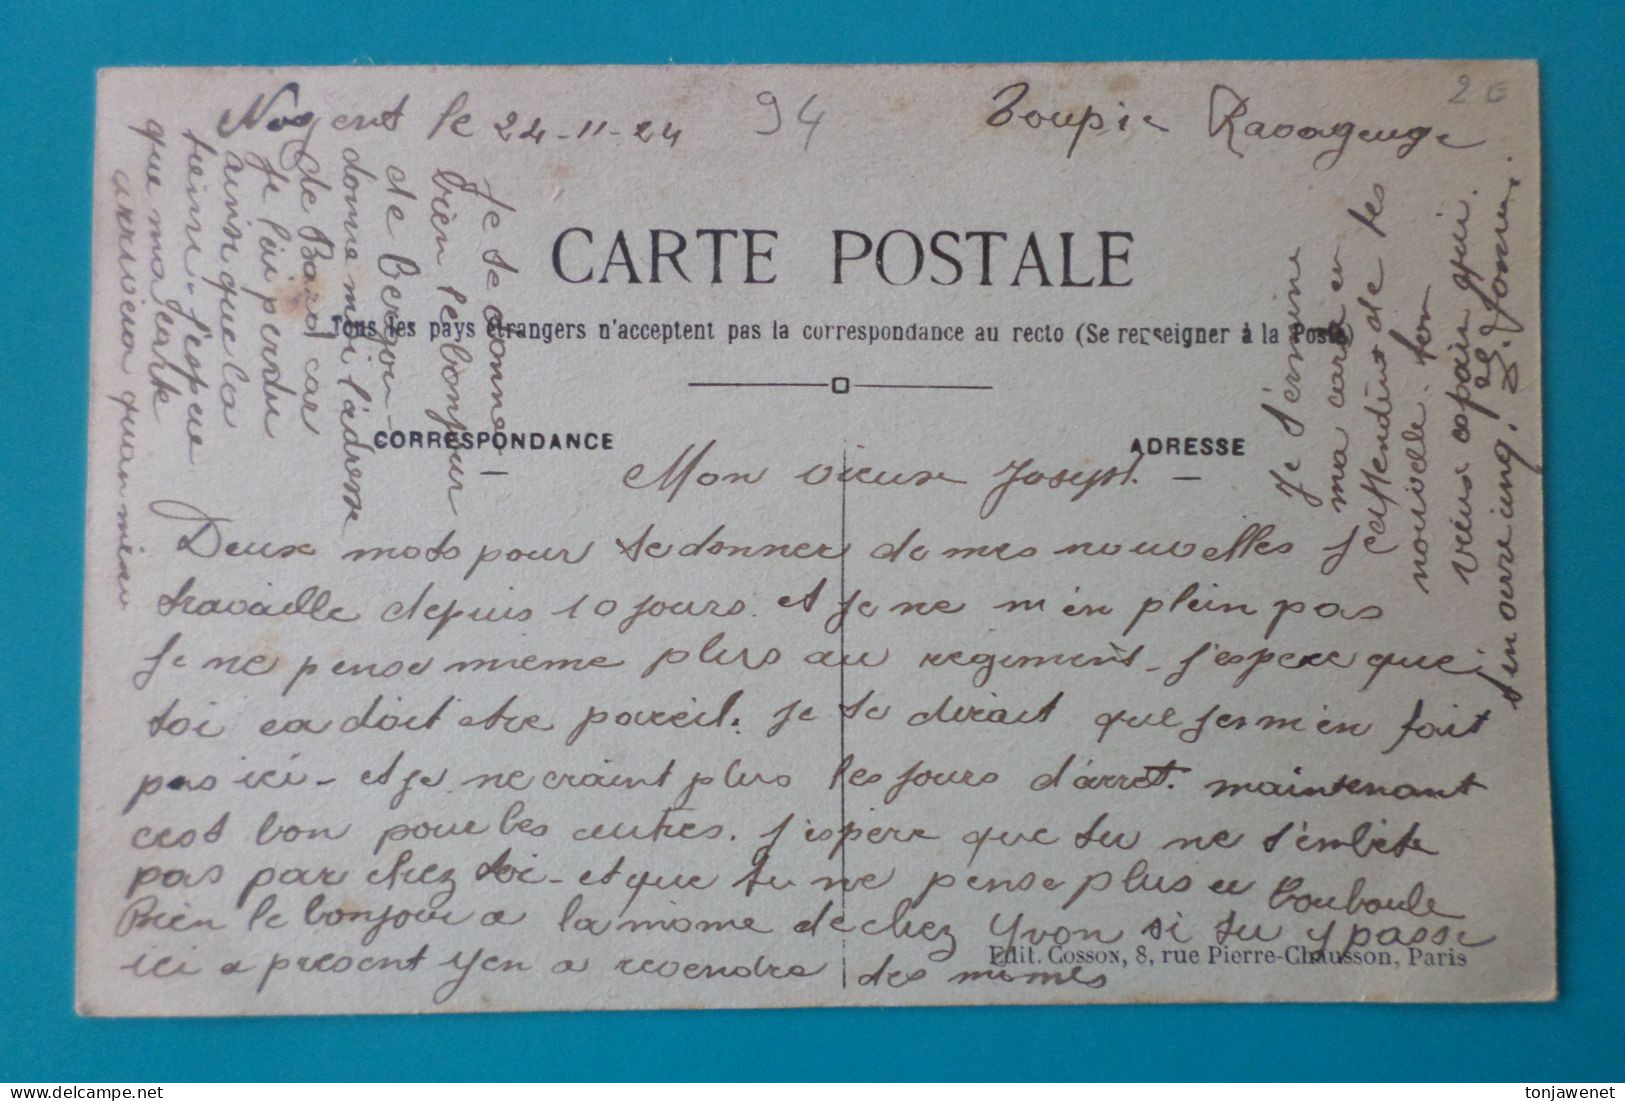 2 €
Nogent le 24-11-24
94
Toupie Ravageuge
CARTE POSTALE
Tous les pays étrangers n'acceptent pas la correspondance au recto (Se renseigner à la Poste)
CORRESPONDANCE
ADRESSE
Mon vieux Joseph.
Deux mots pour te donner de mes nouvelles Je
travaille depuis 10 jours. et je ne m'en plein pas
Je ne pense mieme plus au regiment - j'espere que
toi ca doit etre pareil. Je te dirait que je m'en fait
pas ici - et je ne craint plus les jours d'arret. maintenant
cest bon pour les autres. J'espère que tu ne t'embète
pas par chez toi - et que tu ne pense plus a Bouboule
Bien le bonjour a la mome de chez Yvon si tu y passe
ici a present y en a revendre des momes
Edit. Cosson, 8, rue Pierre-Chausson, Paris
Je termine
ma carte en
attendant de tes
nouvelle. ton
vieux copain qui
s'en ouvriung.
Je te donne
bien le bonjour
de
donne moi l'adresse
de Barod car
Je l'ai perdu
ainsi que la
tienne - J'espere
que ma carte
arrivera quan mieme
tonjawenet